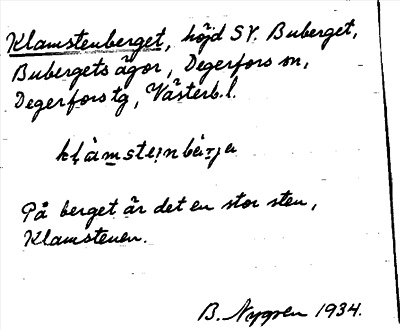 Klamstenberget, höjd SV. Buberget,
Bubergets ägor, Degerfors sn,
Degerfors tg, Västerb. l.
På berget är det en stor sten,
Klamstenen.
B. Nygren 1934.